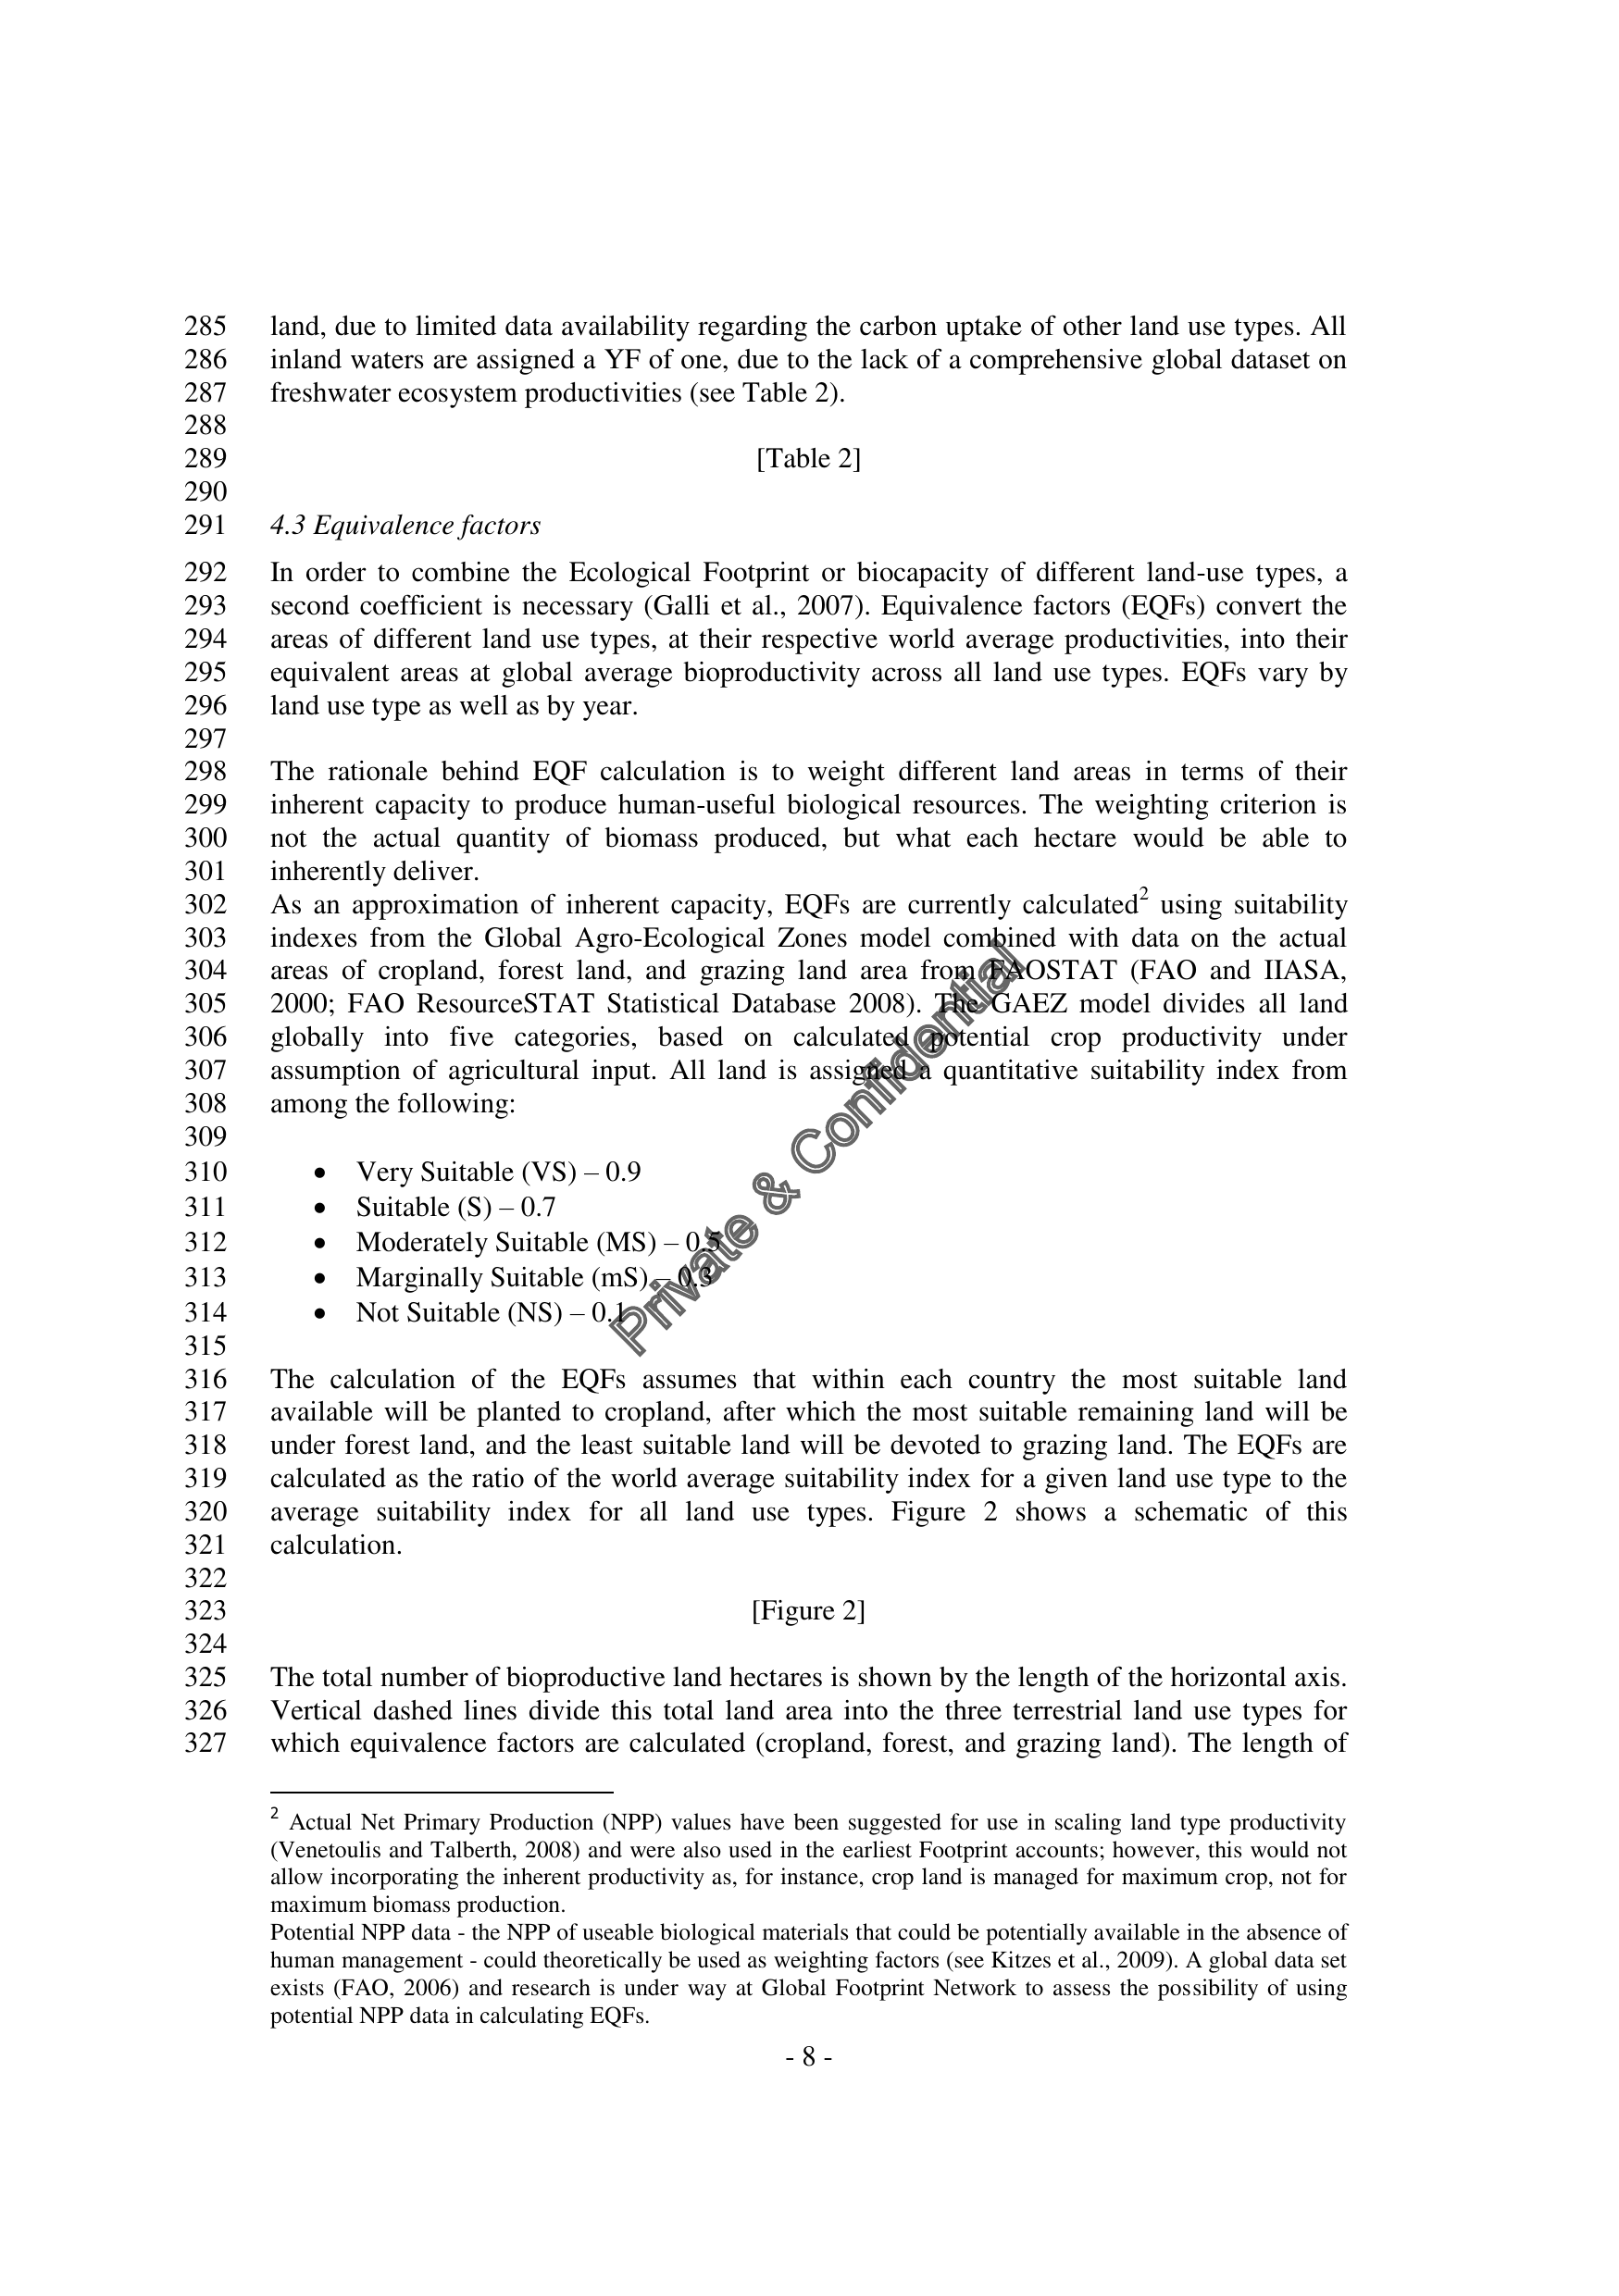 285 land, due to limited data availability regarding the carbon uptake of other land use types. All
286 inland waters are assigned a YF of one, due to the lack of a comprehensive global dataset on
287 freshwater ecosystem productivities (see Table 2).
288
289 [Table 2]
290
291 4.3 Equivalence factors
292 In order to combine the Ecological Footprint or biocapacity of different land-use types, a
293 second coefficient is necessary (Galli et al., 2007). Equivalence factors (EQFs) convert the
294 areas of different land use types, at their respective world average productivities, into their
295 equivalent areas at global average bioproductivity across all land use types. EQFs vary by
296 land use type as well as by year.
297
298 The rationale behind EQF calculation is to weight different land areas in terms of their
299 inherent capacity to produce human-useful biological resources. The weighting criterion is
300 not the actual quantity of biomass produced, but what each hectare would be able to
301 inherently deliver.
302 As an approximation of inherent capacity, EQFs are currently calculated2 using suitability
303 indexes from the Global Agro-Ecological Zones model combined with data on the actual
304 areas of cropland, forest land, and grazing land area from FAOSTAT (FAO and IIASA,
305 2000; FAO ResourceSTAT Statistical Database 2008). The GAEZ model divides all land
306 globally into five categories, based on calculated potential crop productivity under
307 assumption of agricultural input. All land is assigned a quantitative suitability index from
308 among the following:
309
310 • Very Suitable (VS) – 0.9
311 • Suitable (S) – 0.7
312 • Moderately Suitable (MS) – 0.5
313 • Marginally Suitable (mS) – 0.3
314 • Not Suitable (NS) – 0.1
Private & Confidential
315
316 The calculation of the EQFs assumes that within each country the most suitable land
317 available will be planted to cropland, after which the most suitable remaining land will be
318 under forest land, and the least suitable land will be devoted to grazing land. The EQFs are
319 calculated as the ratio of the world average suitability index for a given land use type to the
320 average suitability index for all land use types. Figure 2 shows a schematic of this
321 calculation.
322
323 [Figure 2]
324
325 The total number of bioproductive land hectares is shown by the length of the horizontal axis.
326 Vertical dashed lines divide this total land area into the three terrestrial land use types for
327 which equivalence factors are calculated (cropland, forest, and grazing land). The length of
2 Actual Net Primary Production (NPP) values have been suggested for use in scaling land type productivity
(Venetoulis and Talberth, 2008) and were also used in the earliest Footprint accounts; however, this would not
allow incorporating the inherent productivity as, for instance, crop land is managed for maximum crop, not for
maximum biomass production.
Potential NPP data - the NPP of useable biological materials that could be potentially available in the absence of
human management - could theoretically be used as weighting factors (see Kitzes et al., 2009). A global data set
exists (FAO, 2006) and research is under way at Global Footprint Network to assess the possibility of using
potential NPP data in calculating EQFs.
- 8 -